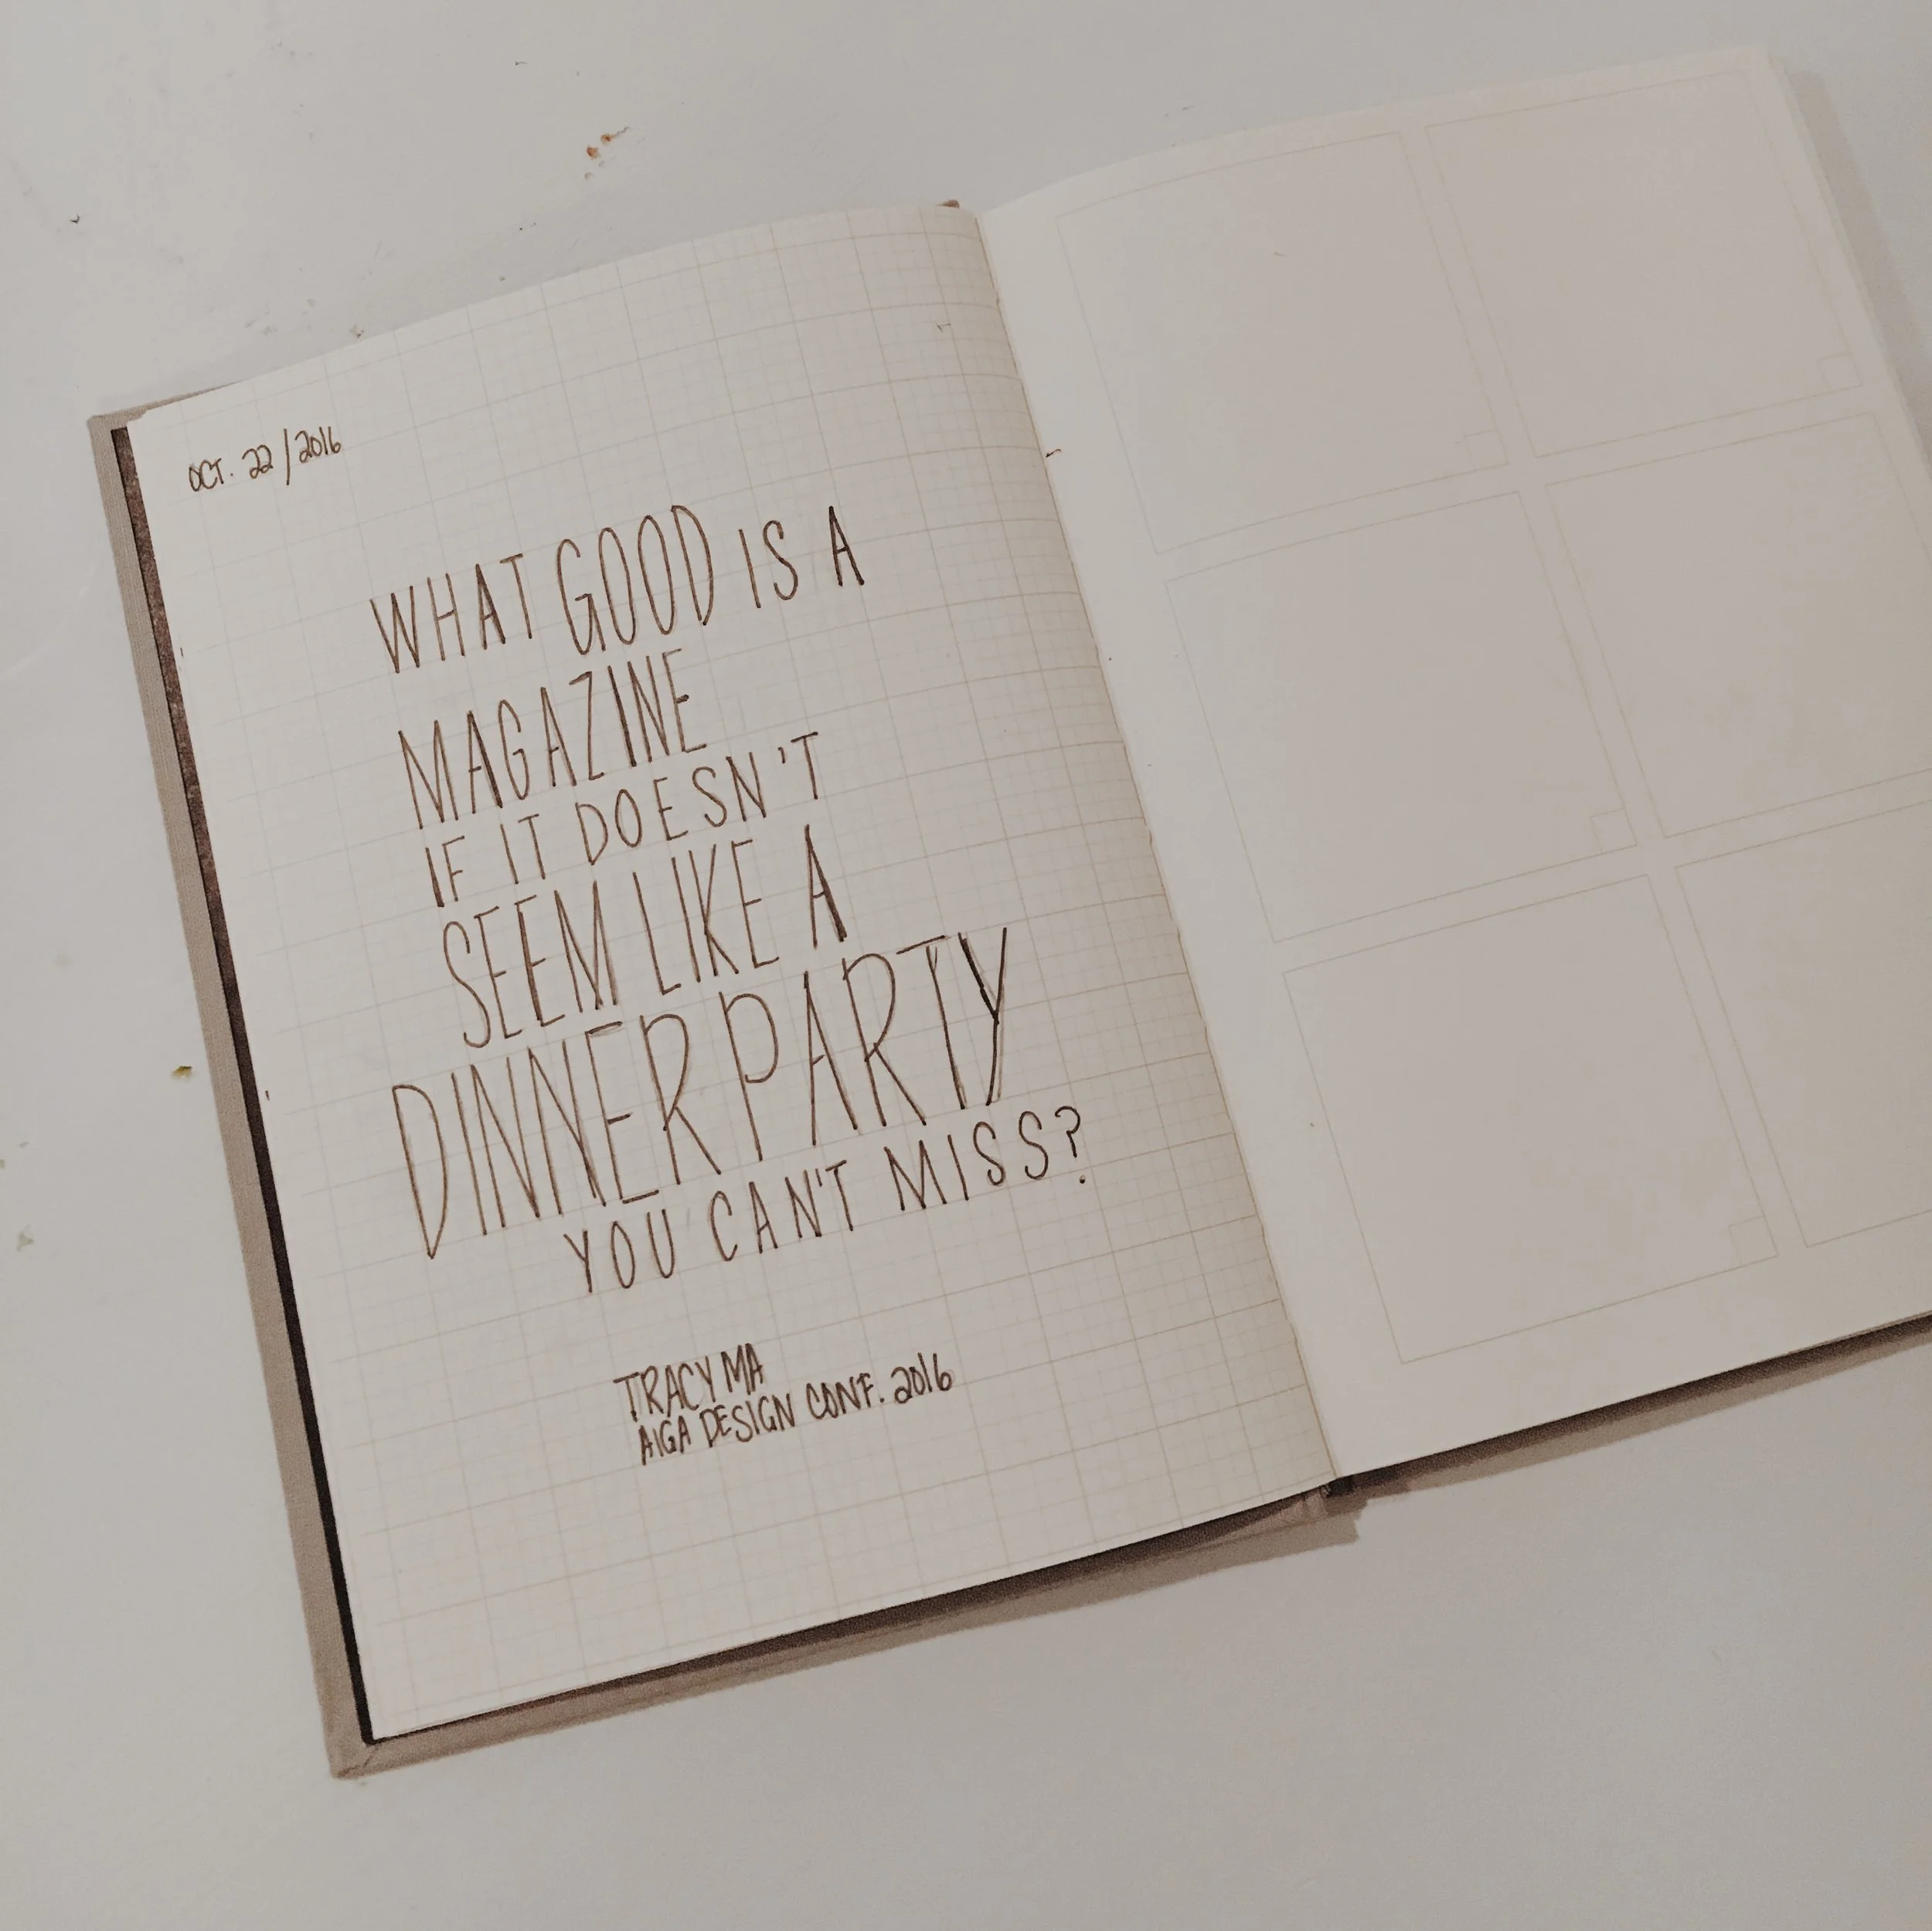 OCT. 22/2016
WHAT GOOD IS A
MAGAZINE
IF IT DOESN'T
SEEM LIKE A
DINNER PARTY
YOU CAN'T MISS?
TRACY MA
AIGA DESIGN CONF. 2016